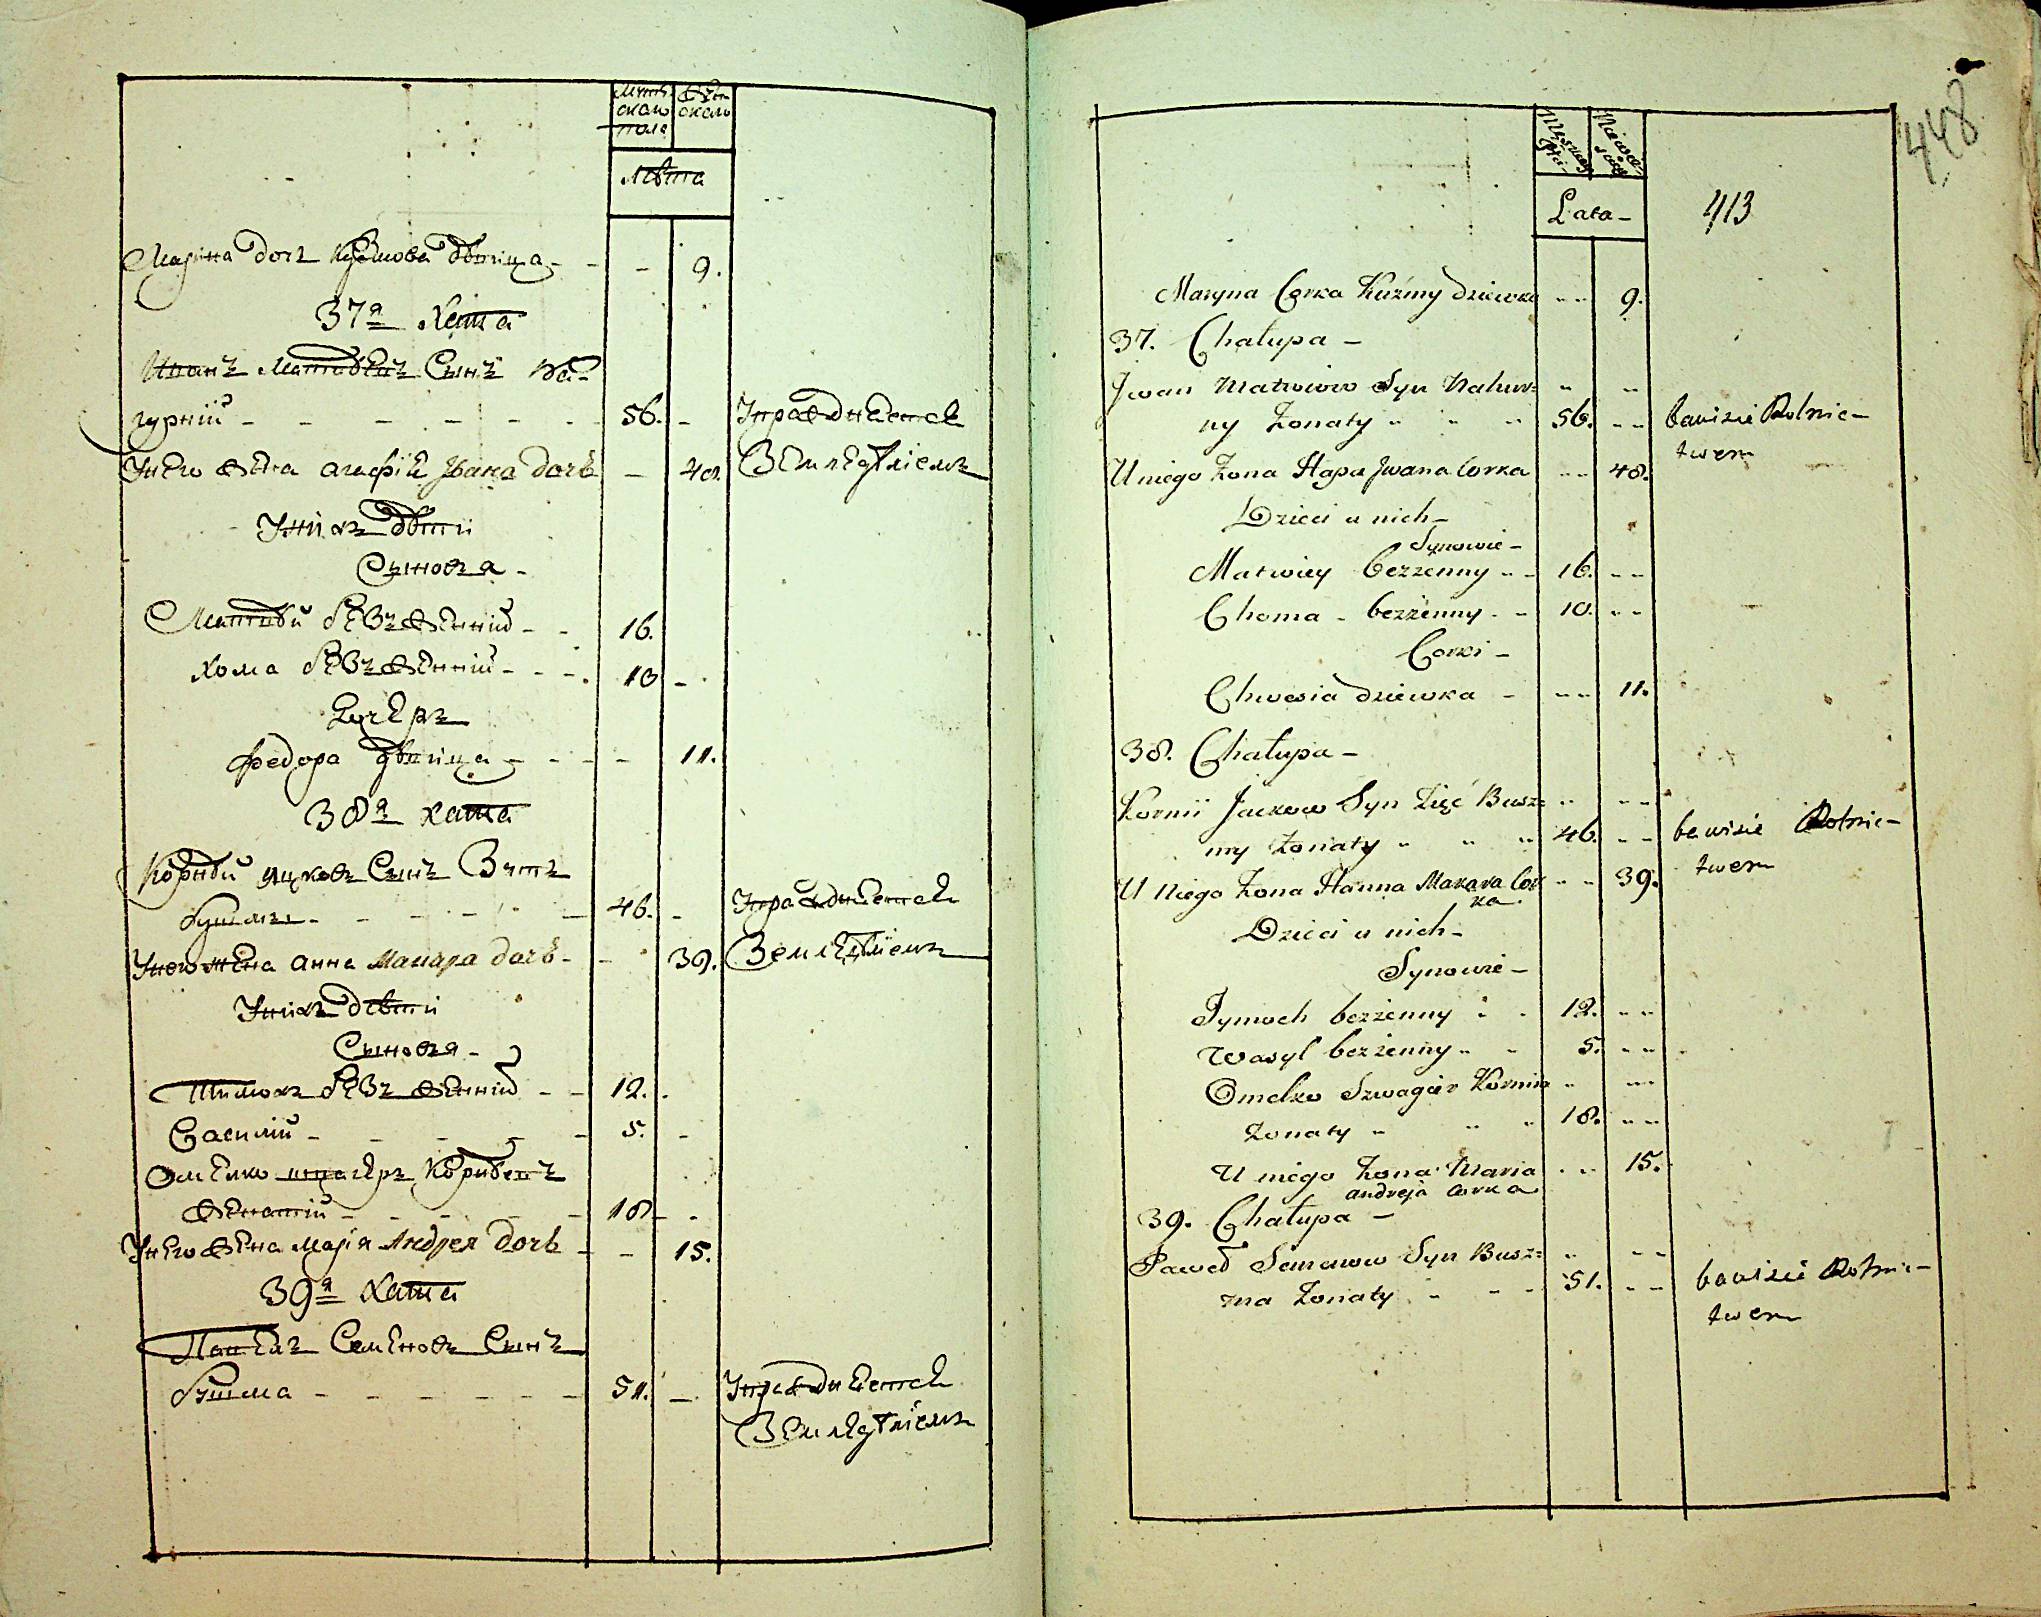 Мужс
скаго
пола
Женскаго
Лѣта
Марина дочь Кузмова дѣвица - - - 9.
37я Хата
Иванъ Матвѣевъ Сынъ На-
гурнїй - - - - - - 56. -
Упражднѣется
У него жена Агафїя Ивана дочь - 48.
Земледѣліемъ
У нихъ дѣти
Сыновья -
Матвѣй безъженнїй - - 16.
Хома безъженнїй - - - 10 -
Дочерь
Федора дѣвица - - - - 11.
38я хата
Корнѣй Яцковъ Сынъ Зять
Бушмы - - - - - - 46. -
Упражднѣется
У него жена Анна Макара дочь - - 39.
Земледѣліемъ
У нихъ дѣти
Сыновья -
Тимохъ безъ женнїй - - 12. -
Василїй - - - - - 5. -
Омелко шваґеръ Корнѣевъ
женатїй - - - - - 18 - -
У него жена Марїя Андрея дочь - - 15.
39я Хата
Павелъ Семеновъ Сынъ
Бушма - - - - - - 51. -
Упражднѣется
Земледѣліемъ
448
413
Lata -
Maryna Corka Kuźmy dziewka - - 9.
37. Chałupa -
Jwan Matwiow Syn Nahur=
ny Żonaty 56. - - bawi sie Rolnic-
twem
U niego Żona Hapa Jwana Corka - - 48.
Dzieci u nich -
Synowie -
Matwiey bezżenny - - 16. - -
Choma - bezżenny - - 10. - -
Corki -
Chwesia dziewka - - - 11.
38. Chałupa -
Kornii Jackow Syn Zięć Busz=
my Żonaty 46. - - bawi sie Rolnic-
twem
U Niego Żona Hanna Makara Cor - - 39.
ka
Dzieci u nich -
Synowie -
Tymoch bezżenny 12. - -
Wasyl bezżenny 5. - -
Omelko Szwagier Kornia
Żonaty 18. - -
U niego Żona Maria - - 15.
Andreja Corka
39. Chałupa -
Paweł Semenow Syn Busz=
ma Żonaty - - - 51. - - bawi sie Rolnic-
twem